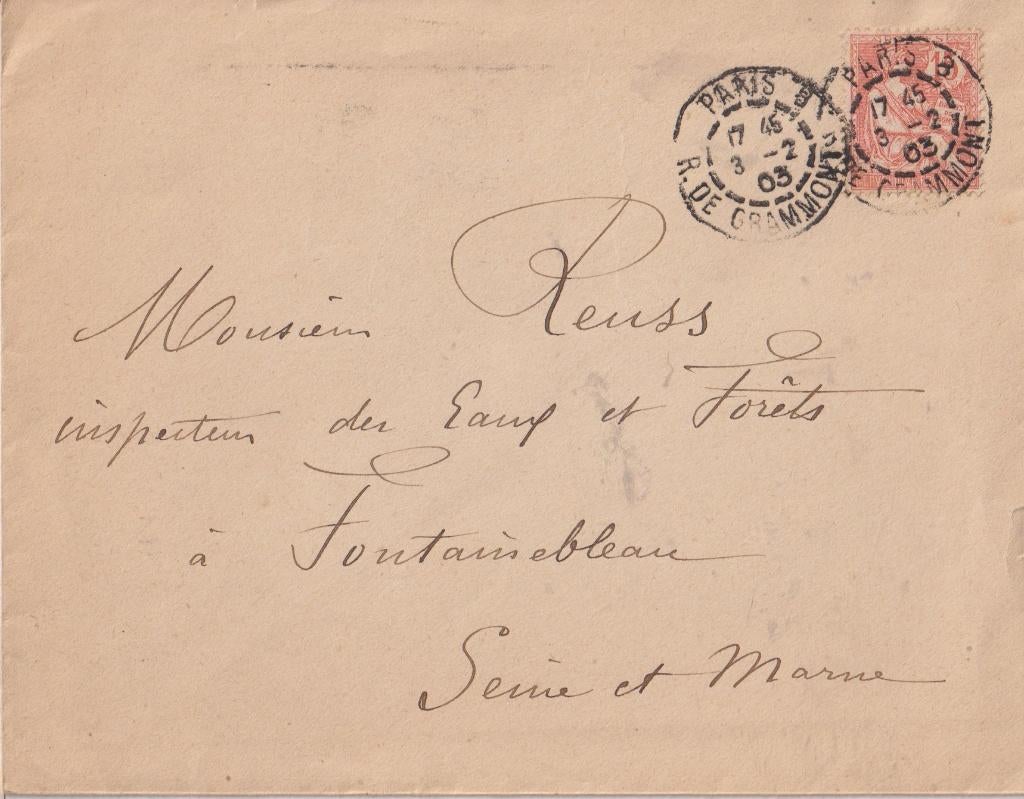 PARIS 8
17 45
3 -2
03
R. DE GRAMMONT
PARIS 8
17 45
3 -2
03
R. DE GRAMMONT
15
Monsieur Reuss
inspecteur des Eaux et Forêts
à Fontainebleau
Seine et Marne